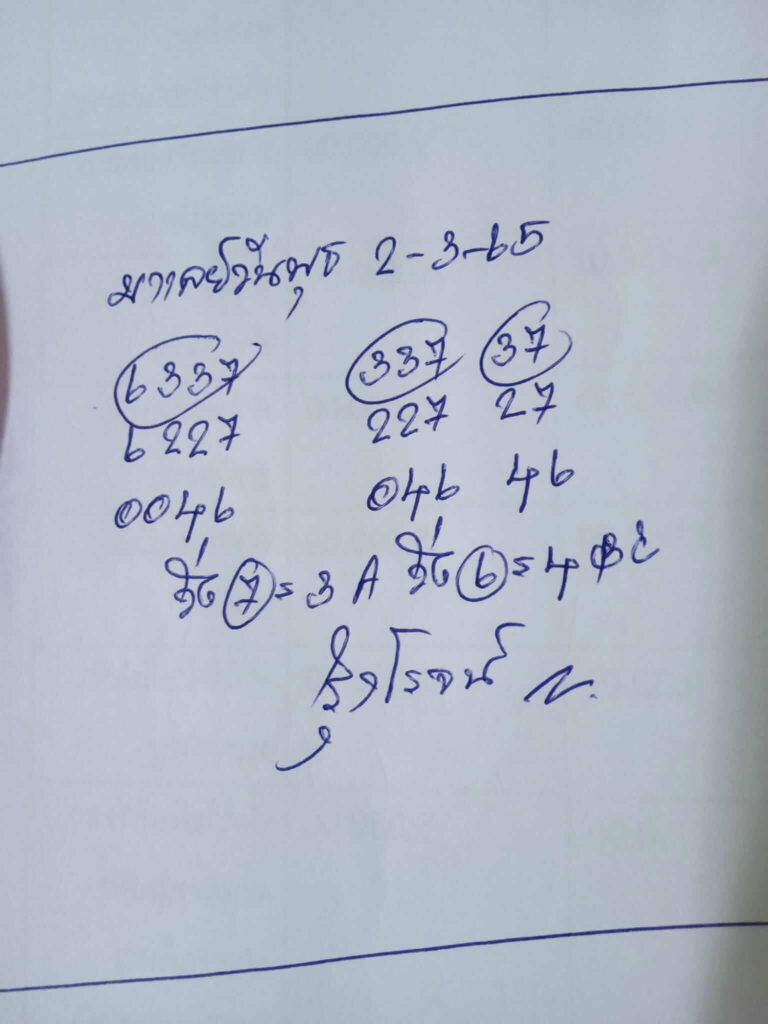 มาเลย์วันพุธ 2-3-65
6337 337 37
6227 227 27
0046 046 46
วิ่ง 7 = 3 A วิ่ง 6 = 4